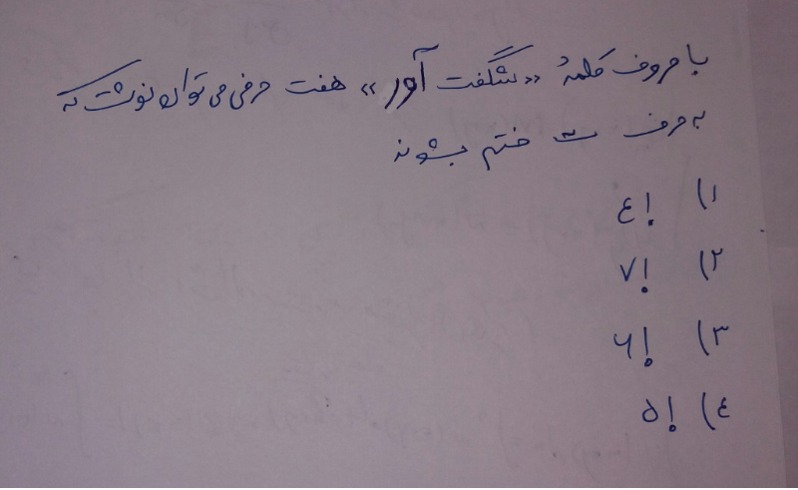 با حروف کلمهٔ «شگفت آور» هفت حرفی می توان نوشت که
به حرف ت ختم بشوند
۱) ٤!
۲) ۷!
۳) ۶!
٤) ۵!